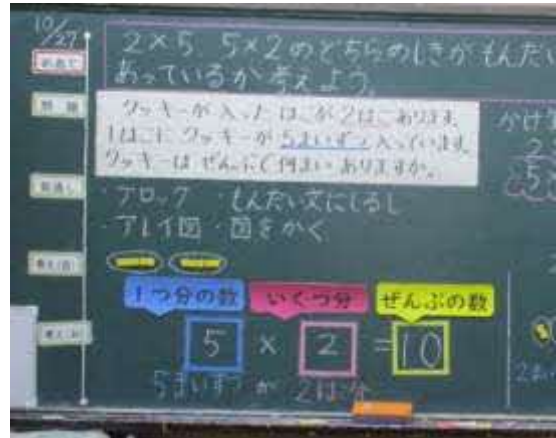 10/27
2×5 5×2のどちらのしきがもんだい
あっているか考えよう。
クッキーが入ったはこが2はこあります。
1はこにクッキーが5まいずつ入っています。
クッキーはぜんぶで何まいありますか。
かけ
・ブロック ・もんだい文にしるし
・アレイ図 ・図をかく
1つ分の数 いくつ分 ぜんぶの数
5 × 2 = 10
5まいずつが 2はこ分